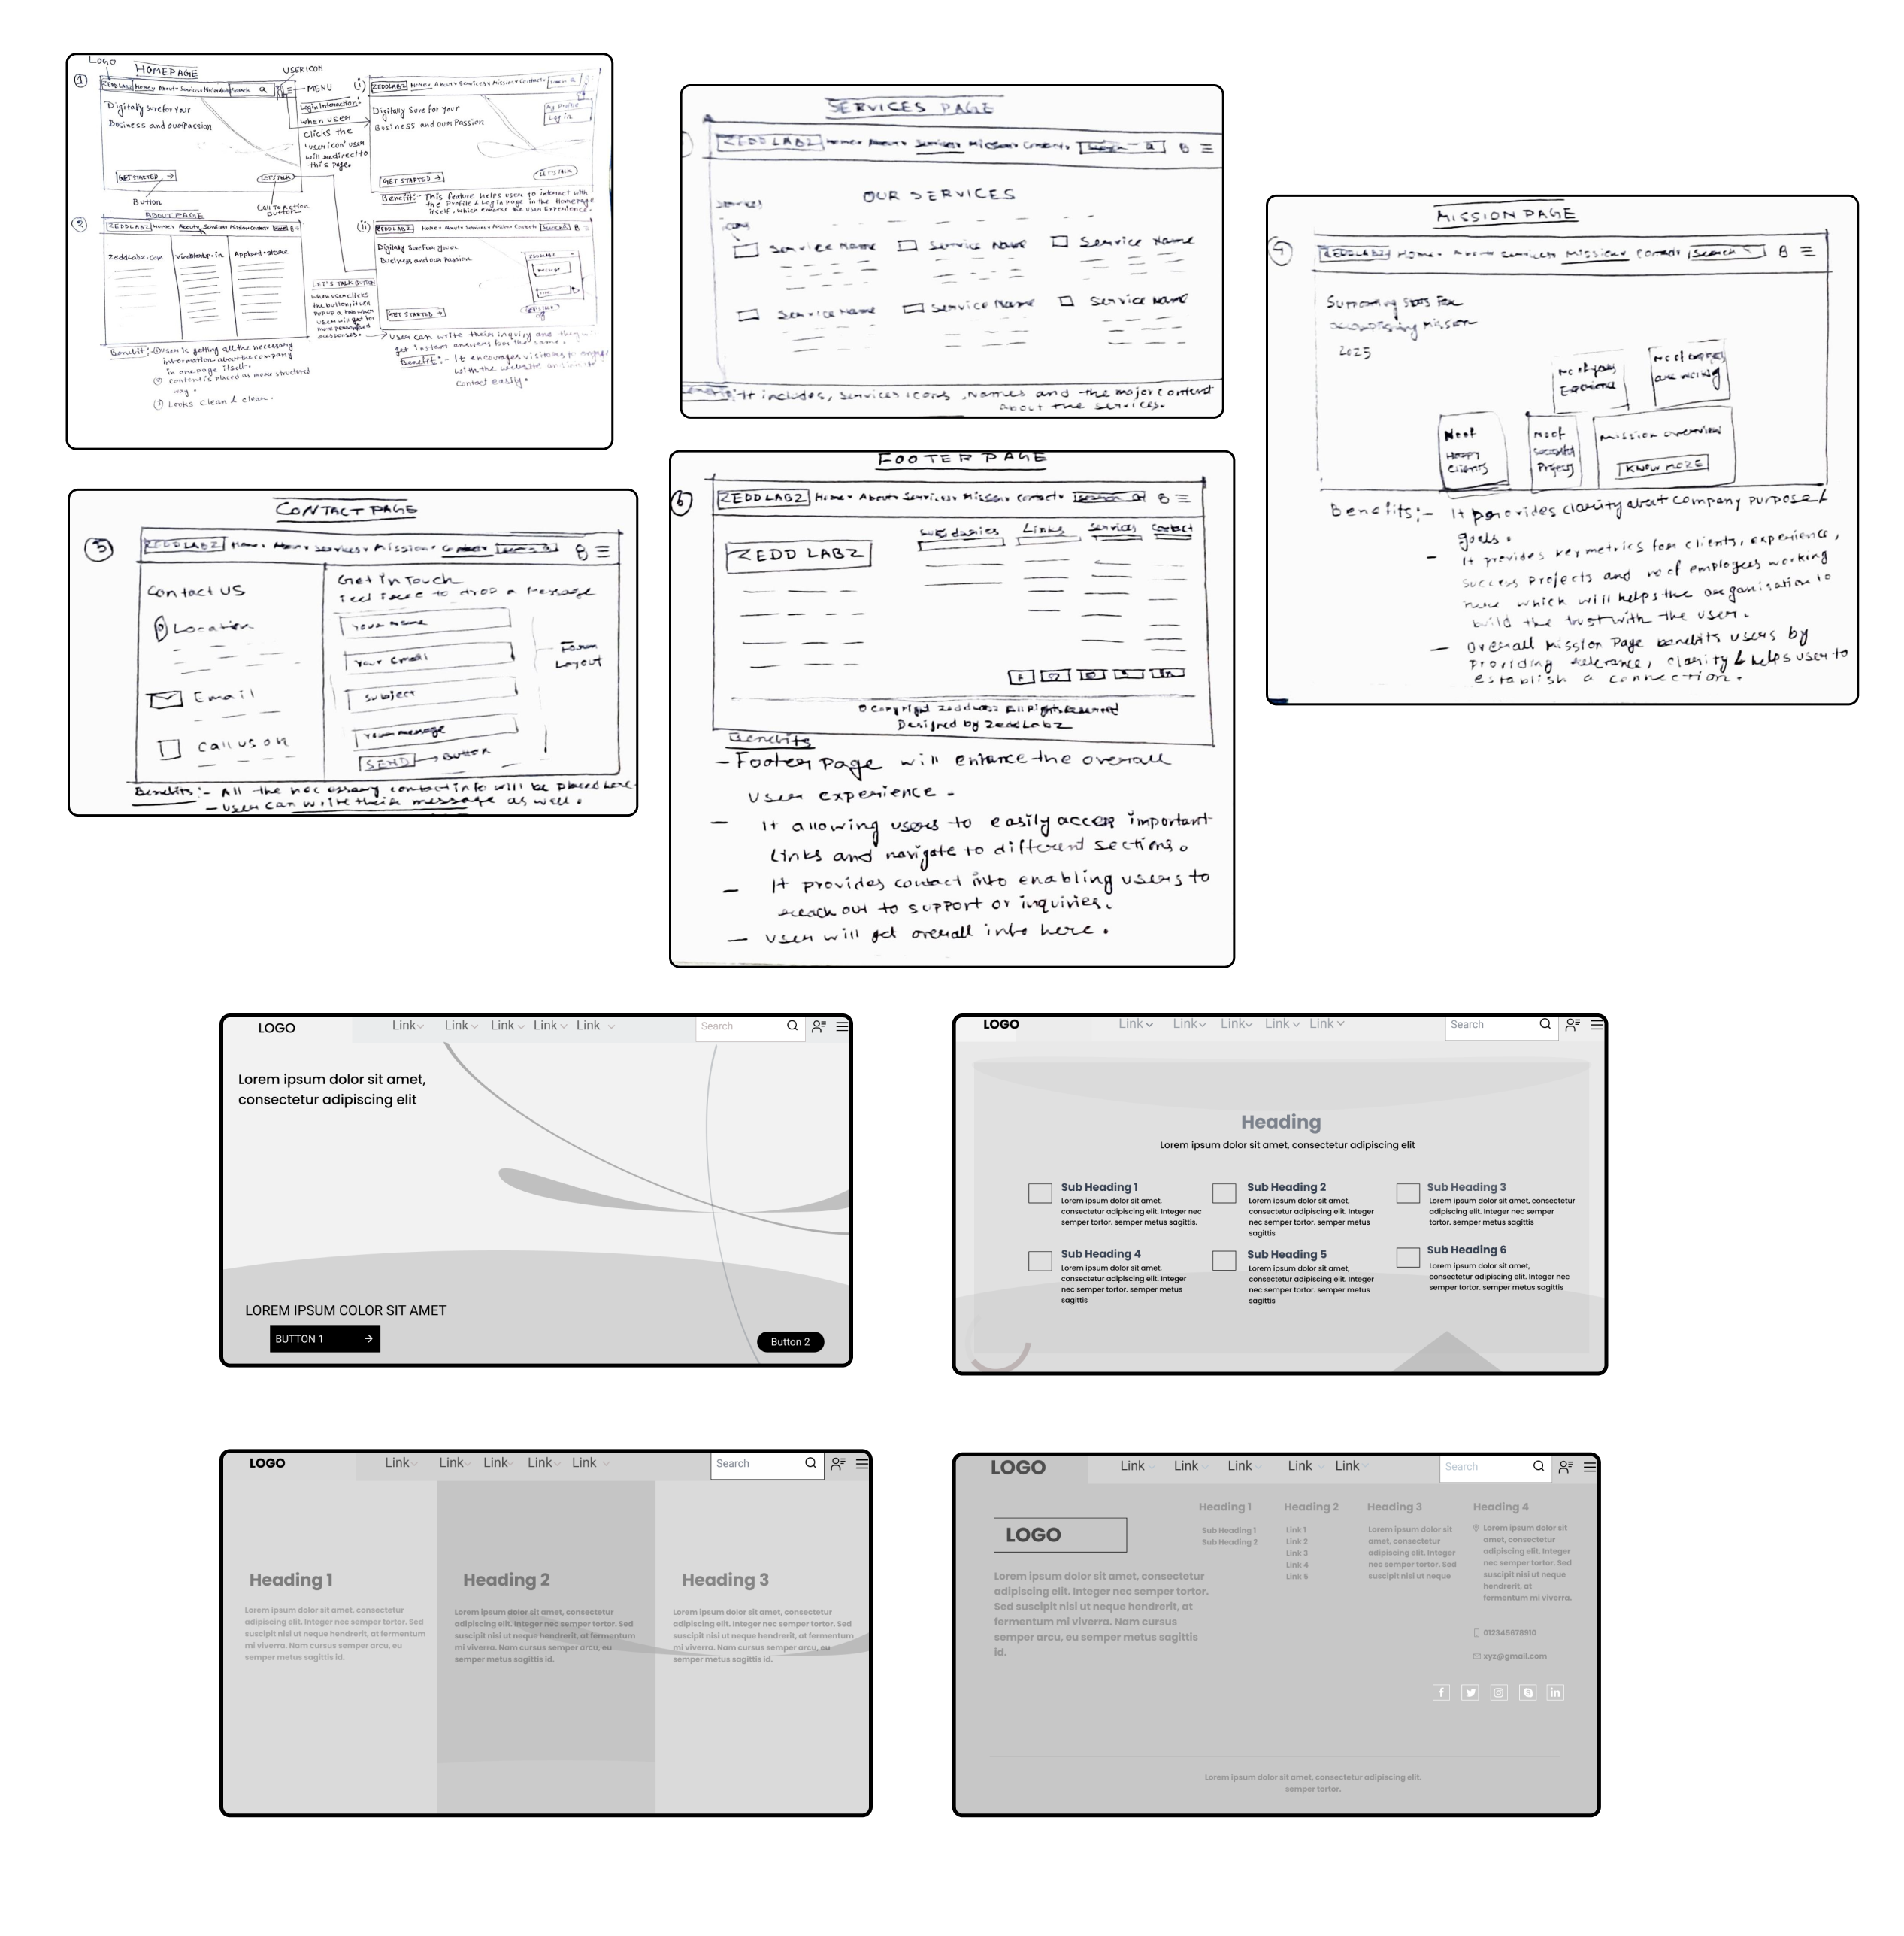 LOGO
HOMEPAGE
USER ICON
①
ZEDD LABZ Home About Services Search
MENU
Digitally sure for Your
Business and our Passion
Login Interaction:
when user
clicks the
'user icon' user
will redirect to
this page.
GET STARTED →
LET'S TALK
Button
Call To Action
Button
(i)
ZEDD LABZ Home About Services Mission Contact
My Profile
Log in
Digitally Sure for Your
Business and our Passion
GET STARTED →
LET'S TALK
Benefit:- This feature helps user to interact with
the Profile & Log in page in the Homepage
itself, which enhances the user Experience.
②
ABOUT PAGE
ZEDD LABZ Home About Services Mission Contact
Zeddlabz.com
Benefit:- ① User is getting all the necessary
information about the company
in one page itself.
② Content is placed as more structured
way.
③ Looks Clean & clear.
LET'S TALK BUTTON
when user clicks
the button, it will
POP UP a tab when
user will get for
more personalised
responses.
(ii)
ZEDD LABZ Home About Services Mission Contact
Digitally Sure for Your
Business and our Passion.
GET STARTED →
User can write their inquiry and they
get instant answers for the same.
Benefit:- It encourages visitors to engage
with the website and
contact easily.
SERVICES PAGE
ZEDD LABZ Home About Services Mission Contact
OUR SERVICES
Services
icons
Service Name Service Name Service Name
Service Name Service Name Service Name
It includes, Services icons, Names and the major content
about the services.
MISSION PAGE
4
ZEDD LABZ Home About Services Mission Contact Search
Supporting Stats For
Accomplishing Mission
2025
No of years
Experience
No of employees
are working
No of
Happy
Clients
No of
Successful
Projects
Mission overview
KNOW MORE
Benefits:- It provides clarity about company purpose &
goals.
- It provides key metrics for clients, experience,
success projects and no of employees working
here which will helps the organisation to
build the trust with the user.
- Overall Mission Page benefits users by
Providing relevance, clarity & helps user to
establish a connection.
CONTACT PAGE
5
ZEDD LABZ Home About Services Mission Contact
Contact US
Location
Email
Call us on
Get in Touch
Feel free to drop a Message
Your Name
Your Email
Subject
Your message
SEND → BUTTON
Form
Layout
Benefits:- All the necessary contact info will be placed here
- User can write their message as well.
FOOTER PAGE
6
ZEDD LABZ Home About Services Mission Contact
ZEDD LABZ
Subsidaries Links Services Contact
© Copyright Zedd Labz All Rights Reserved
Designed by Zedd Labz
Benefits
- Footer Page will enhance the overall
user experience.
- It allowing users to easily access important
links and navigate to different sections.
- It provides contact info enabling users to
reach out to support or inquiries.
- User will get overall info here.
LOGO Link Link Link Link Link Search
Lorem ipsum dolor sit amet,
consectetur adipiscing elit
LOREM IPSUM COLOR SIT AMET
BUTTON 1
Button 2
LOGO Link Link Link Link Link Search
Heading
Lorem ipsum dolor sit amet, consectetur adipiscing elit
Sub Heading 1
Lorem ipsum dolor sit amet,
consectetur adipiscing elit. Integer nec
semper tortor. semper metus sagittis.
Sub Heading 2
Lorem ipsum dolor sit amet,
consectetur adipiscing elit. Integer
nec semper tortor. semper metus
sagittis
Sub Heading 3
Lorem ipsum dolor sit amet, consectetur
adipiscing elit. Integer nec semper
tortor. semper metus sagittis
Sub Heading 4
Lorem ipsum dolor sit amet,
consectetur adipiscing elit. Integer
nec semper tortor. semper metus
sagittis
Sub Heading 5
Lorem ipsum dolor sit amet,
consectetur adipiscing elit. Integer
nec semper tortor. semper metus
sagittis
Sub Heading 6
Lorem ipsum dolor sit amet,
consectetur adipiscing elit. Integer nec
semper tortor. semper metus sagittis
LOGO Link Link Link Link Link Search
Heading 1
Lorem ipsum dolor sit amet, consectetur
adipiscing elit. Integer nec semper tortor. Sed
suscipit nisi ut neque hendrerit, at fermentum
mi viverra. Nam cursus semper arcu, eu
semper metus sagittis id.
Heading 2
Lorem ipsum dolor sit amet, consectetur
adipiscing elit. Integer nec semper tortor. Sed
suscipit nisi ut neque hendrerit, at fermentum
mi viverra. Nam cursus semper arcu, eu
semper metus sagittis id.
Heading 3
Lorem ipsum dolor sit amet, consectetur
adipiscing elit. Integer nec semper tortor. Sed
suscipit nisi ut neque hendrerit, at fermentum
mi viverra. Nam cursus semper arcu, eu
semper metus sagittis id.
LOGO Link Link Link Link Link Search
LOGO
Lorem ipsum dolor sit amet, consectetur
adipiscing elit. Integer nec semper tortor.
Sed suscipit nisi ut neque hendrerit, at
fermentum mi viverra. Nam cursus
semper arcu, eu semper metus sagittis
id.
Heading 1
Sub Heading 1
Sub Heading 2
Heading 2
Link 1
Link 2
Link 3
Link 4
Link 5
Heading 3
Lorem ipsum dolor sit
amet, consectetur
adipiscing elit. Integer
nec semper tortor. Sed
suscipit nisi ut neque
Heading 4
Lorem ipsum dolor sit
amet, consectetur
adipiscing elit. Integer
nec semper tortor. Sed
suscipit nisi ut neque
hendrerit, at
fermentum mi viverra.
012345678910
xyz@gmail.com
Lorem ipsum dolor sit amet, consectetur adipiscing elit.
semper tortor.